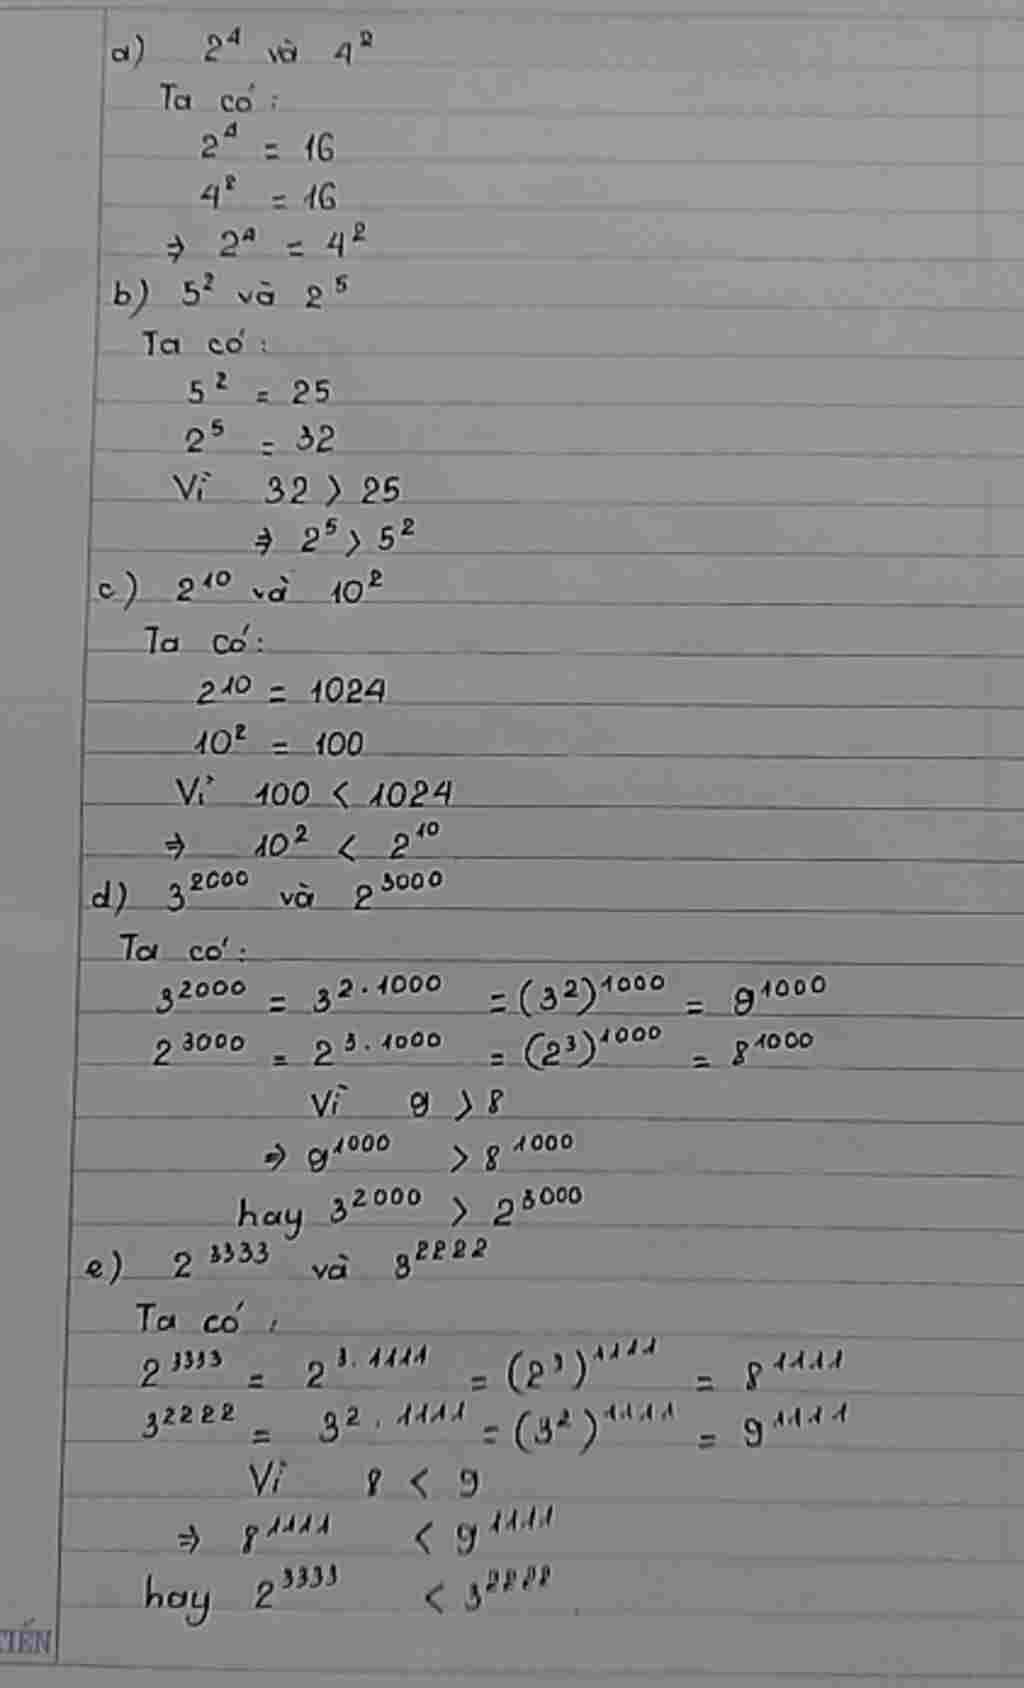 a) 2⁴ và 4²
Ta có:
2⁴ = 16
4² = 16
⇒ 2⁴ = 4²
b) 5² và 2⁵
Ta có:
5² = 25
2⁵ = 32
Vì 32 > 25
⇒ 2⁵ > 5²
c) 2¹⁰ và 10²
Ta có:
2¹⁰ = 1024
10² = 100
Vì 100 < 1024
⇒ 10² < 2¹⁰
d) 3²⁰⁰⁰ và 2³⁰⁰⁰
Ta có:
3²⁰⁰⁰ = 3²·¹⁰⁰⁰ = (3²)¹⁰⁰⁰ = 9¹⁰⁰⁰
2³⁰⁰⁰ = 2³·¹⁰⁰⁰ = (2³)¹⁰⁰⁰ = 8¹⁰⁰⁰
Vì 9 > 8
⇒ 9¹⁰⁰⁰ > 8¹⁰⁰⁰
hay 3²⁰⁰⁰ > 2³⁰⁰⁰
e) 2³³³³ và 3²²²²
Ta có:
2³³³³ = 2³·¹¹¹¹ = (2³)¹¹¹¹ = 8¹¹¹¹
3²²²² = 3²·¹¹¹¹ = (3²)¹¹¹¹ = 9¹¹¹¹
Vì 8 < 9
⇒ 8¹¹¹¹ < 9¹¹¹¹
hay 2³³³³ < 3²²²²
TIẾN